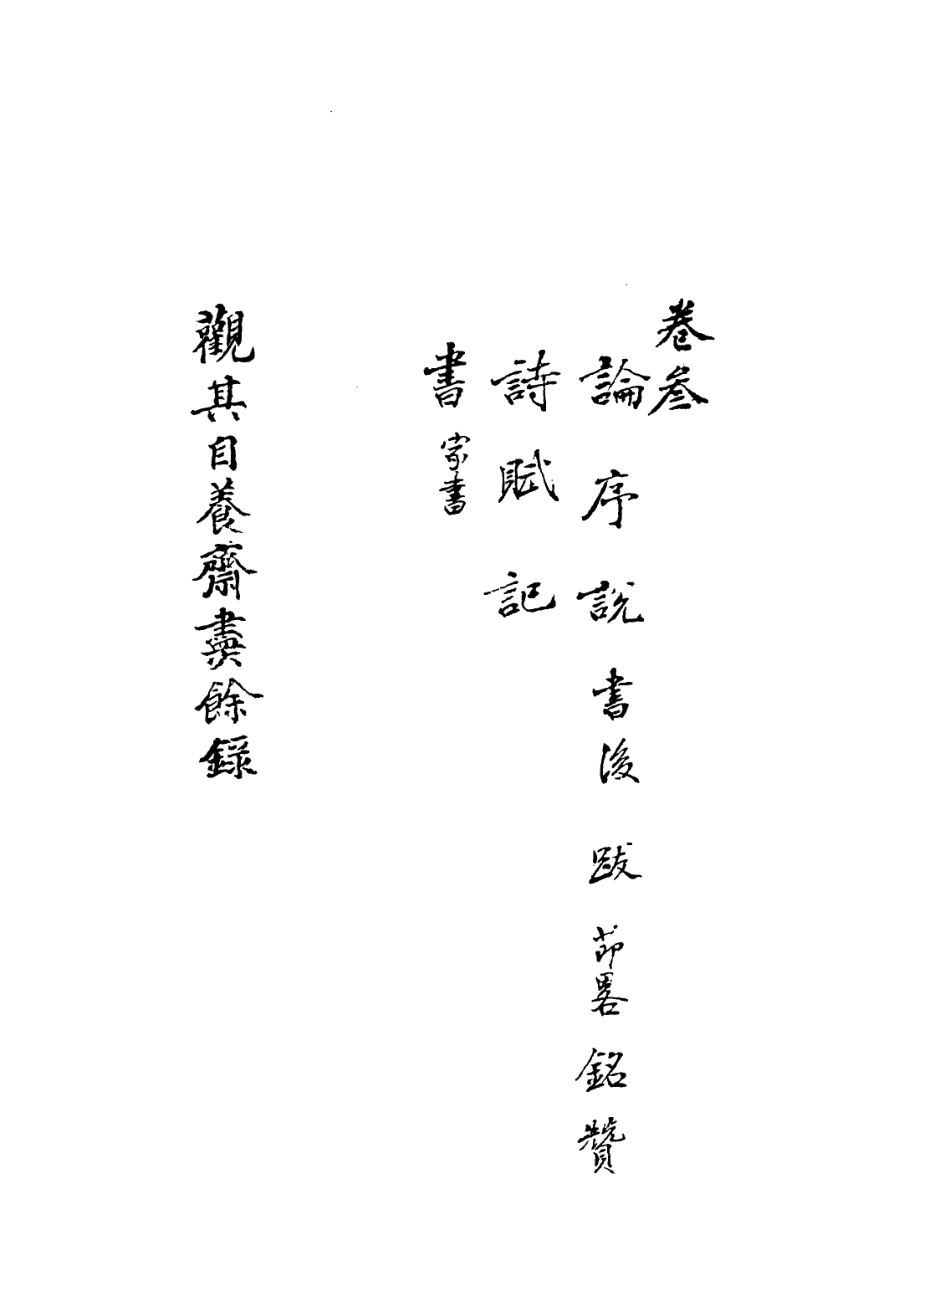 卷叁
論序說書後跋節畧銘贊
詩賦記
書家書
觀其自養齋燼餘錄